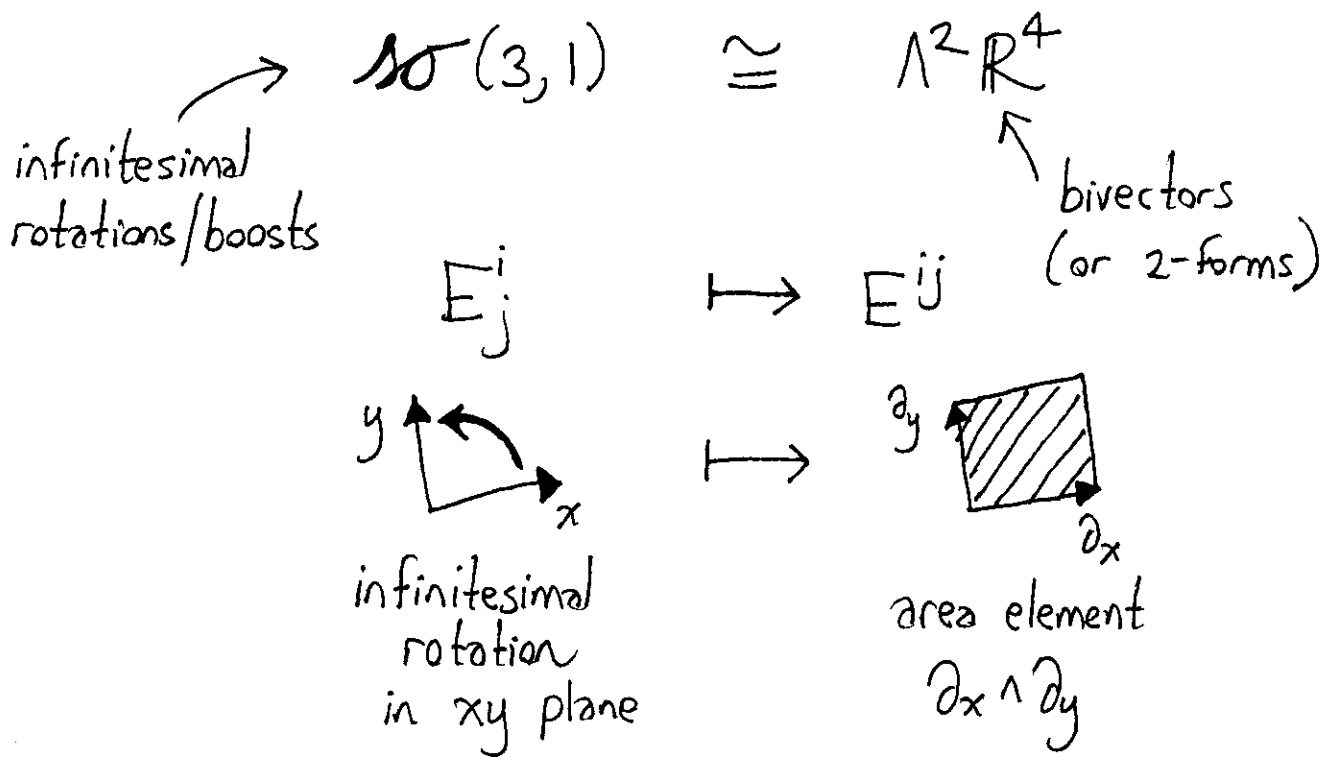 𝔰𝔬(3,1) ≅ Λ²ℝ⁴
infinitesimal
rotations/boosts
bivectors
(or 2-forms)
Eⁱⱼ ↦ Eⁱʲ
y
x
↦
∂y
∂x
infinitesimal
rotation
in xy plane
area element
∂x ∧ ∂y